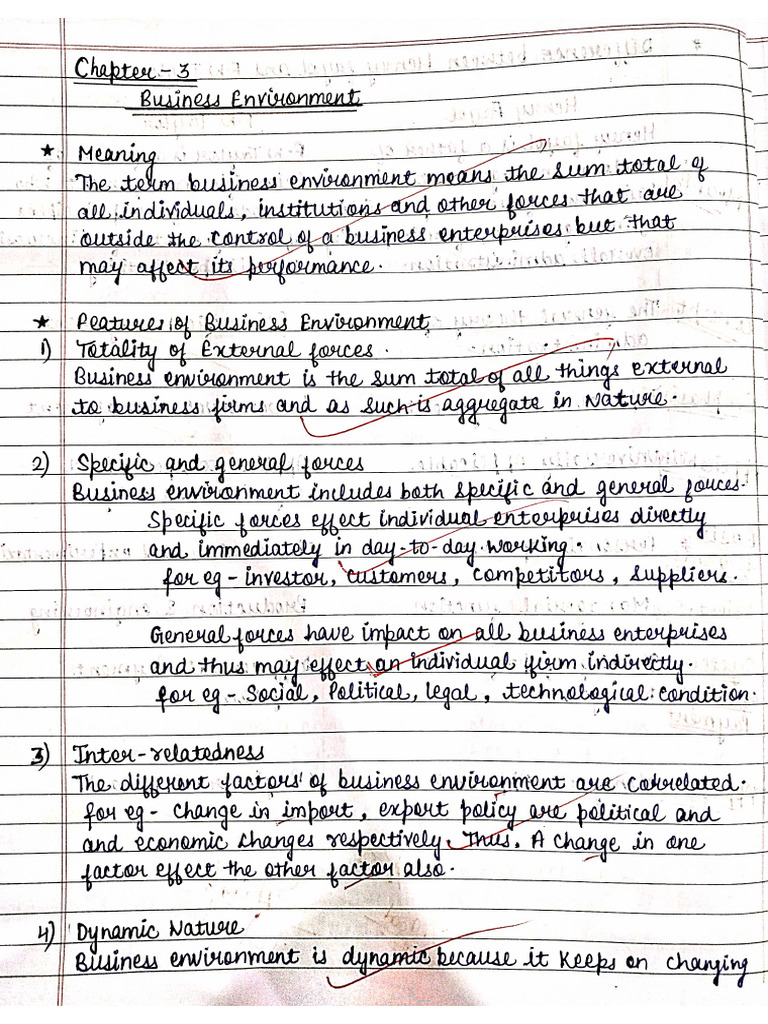 Chapter - 3
Business Environment
★ Meaning
The term business environment means the sum total of
all individuals, institutions and other forces that are
outside the control of a business enterprises but that
may affect its performance.
★ Features of Business Environment
1) Totality of External forces.
Business environment is the sum total of all things external
to business firms and as such is aggregate in Nature.
2) Specific and general forces
Business environment includes both specific and general forces.
Specific forces effect individual enterprises directly
and immediately in day-to-day working.
for eg - investor, customers, competitors, suppliers.
General forces have impact on all business enterprises
and thus may effect an individual firm indirectly.
for eg - Social, Political, legal, technological condition.
3) Inter-relatedness
The different factors of business environment are correlated.
for eg - change in import, export policy are political and
and economic changes respectively. Thus, A change in one
factor effect the other factor also.
4) Dynamic Nature
Business environment is dynamic because it keeps on changing